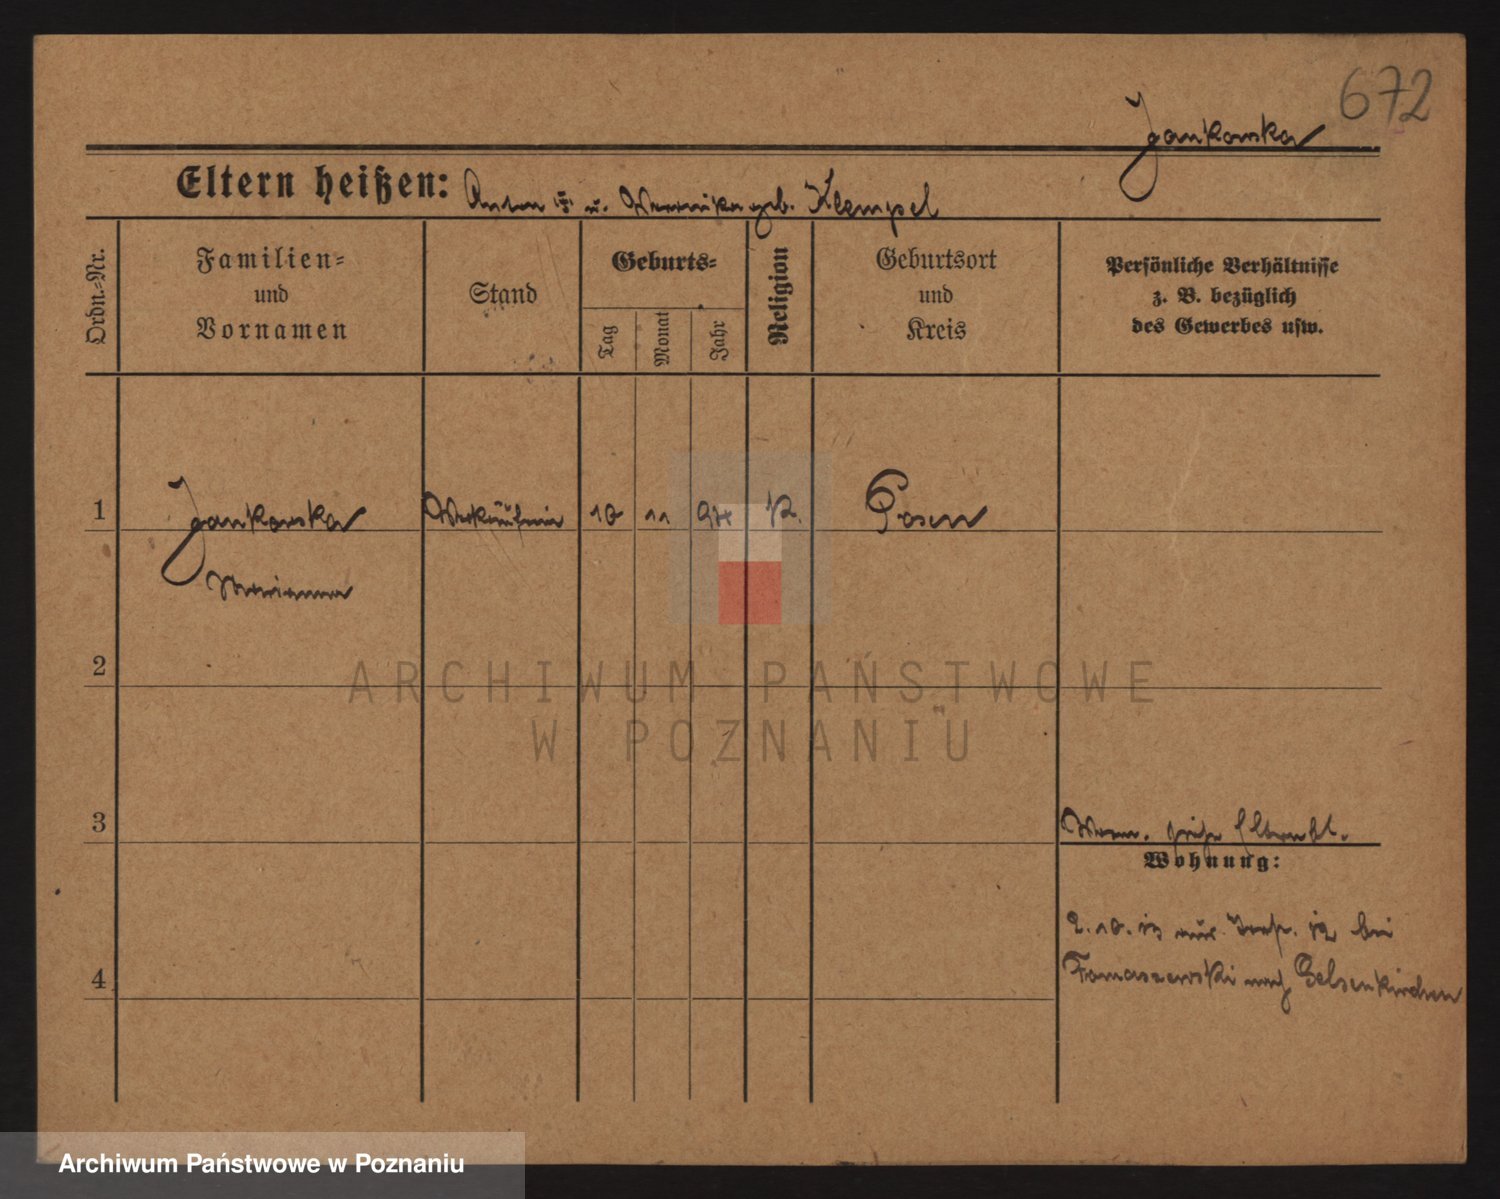 672
Jankowska
Eltern heißen: Anton u. Veronika geb. Klempel
Ordn.-Nr.
Familien-
und
Vornamen
Stand
Geburts-
Tag
Monat
Jahr
Religion
Geburtsort
und
Kreis
Persönliche Verhältnisse
z. B. bezüglich
des Gewerbes usw.
1
Jankowska
Verkäuferin
10
11
94
K.
Posen
Marianna
2
3
Verm. siehe
Wohnung:
2.10.13 bei
4
Tomaszewski nach Gelsenkirchen
ARCHIWUM PAŃSTWOWE
W POZNANIU
Archiwum Państwowe w Poznaniu